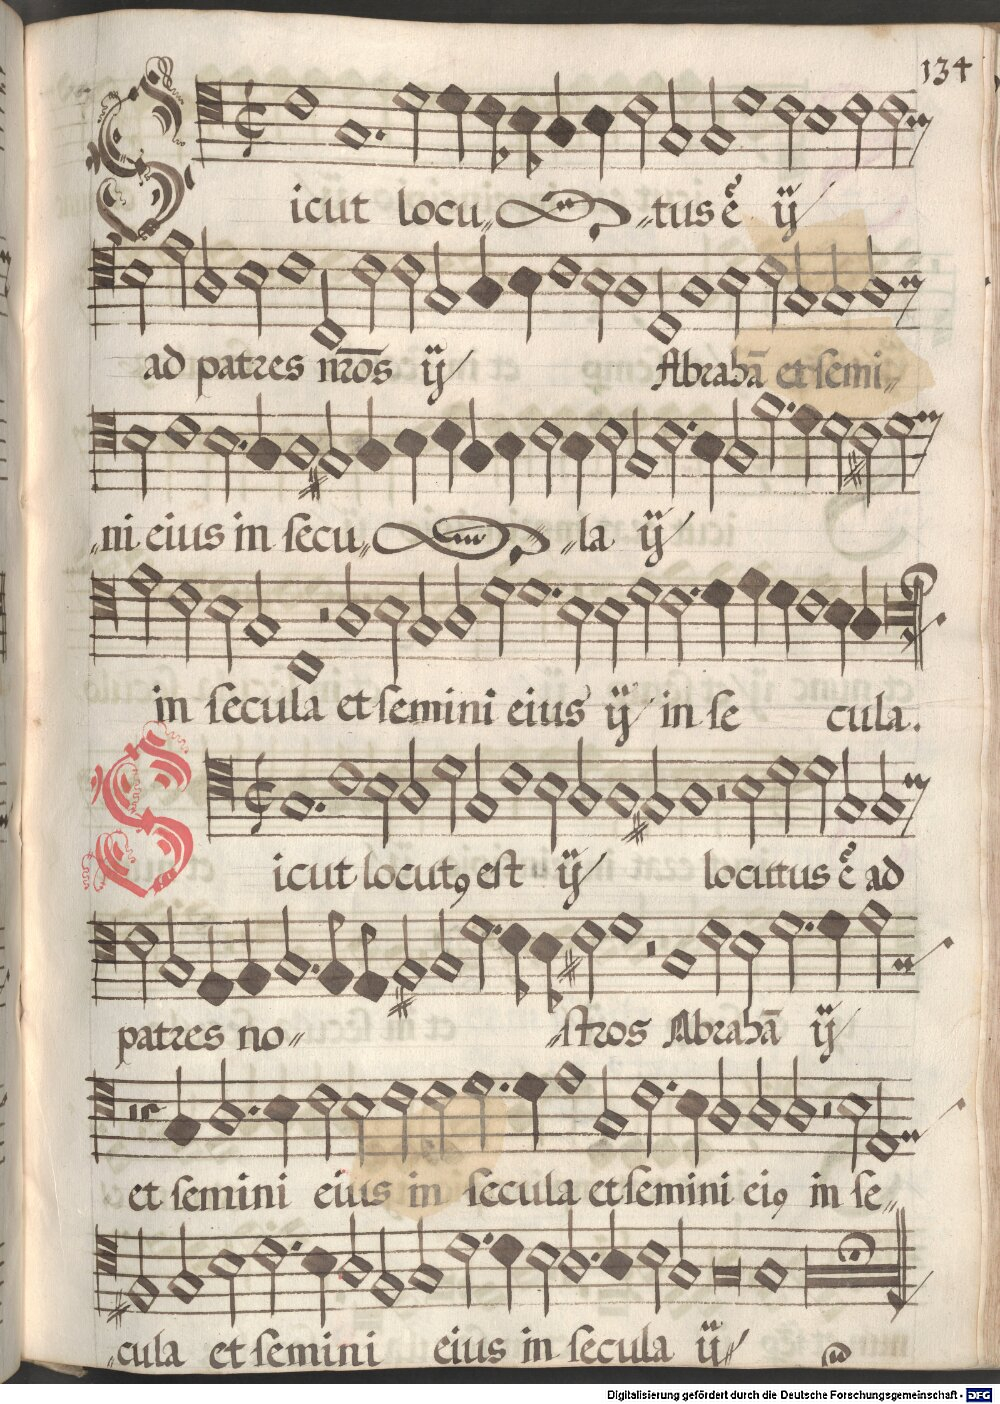 134
Sicut locu„ „tus ē ij
ad patres nr̄os ij Abrahā et semi„
„ni eius in secu„ „la ij
in secula et semini eius ij in se cula.
Sicut locutꝯ est ij locutus ē ad
patres no„ „stros Abrahā ij
et semini eius in secula et semini eiꝯ in se„
„cula et semini eius in secula ij
Digitalisierung gefördert durch die Deutsche Forschungsgemeinschaft - DFG